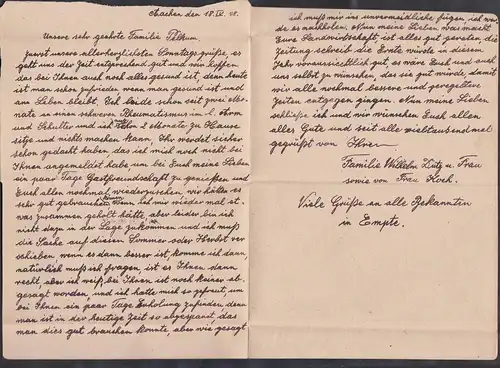 Aachen den 18.IV. 48.
Unsere sehr geehrte Familie
zuerst unsere allerherzlichsten Sonntagsgrüße, es
geht uns der Zeit entsprechend gut und wir hoffen
das bei Ihnen auch noch alles gesund ist, denn heute
ist man schon zufrieden wenn man gesund ist und
am Leben bleibt. Ich leide schon seit zwei Mo=
nate an einen schweren Rheumatismus im l. Arm
und Schulter und ich 2 Monate zu Hause
sitze und nichts machen kann. Ihr werdet sicher
schon gedacht haben das ich mich noch nicht bei
Ihnen angemeldet habe um bei Euch meine Lieben
ein paar Tage Gastfreundschaft zu genießen und
Euch allen nochmal wiederzusehen. Wir hätten es
sehr gut gebrauchen können wenn ich mir wieder mal et=
was zusammen geholt hätte, aber leider bin ich
nicht dazu in der Lage zukommen und ich muß
die Sache auf diesen Sommer oder Herbst ver=
schieben, wenn es dann besser ist, komme ich dann,
natürlich muß ich fragen, ist es Ihnen dann
recht, aber ich weiß, bei Ihnen ist noch keiner ab=
gesagt worden, und ich hatte mich so gefreut um
bei Ihnen ein paar Tage Erholung zufinden, denn
man ist in der heutige Zeit so abgespannt, das
man dies gut brauchen konnte, aber wie gesagt
ich muß mir ins unvermeidliche fügen, ich wer=
de es nachholen. Nun meine Lieben, was macht
Eure Landwirtschaft, ist alles gut geraten, die
Zeitung schreibt die Ernte würde in diesem
Jahr voraussichtlich gut, es wäre Euch und auch
uns selbst zu wünschen, das sie gut würde, damit
wir alle nochmal bessere und geregeltere
Zeiten entgegen gingen. Nun meine Lieben
schließe ich und wir wünschen Euch allen
alles Gute und seit alle vieltausendmal
gegrüßt von Ihrer
Familie Wilhelm Lutz u. Frau
sowie von Frau Koch.
Viele Grüße an alle Bekannten
in Empte.